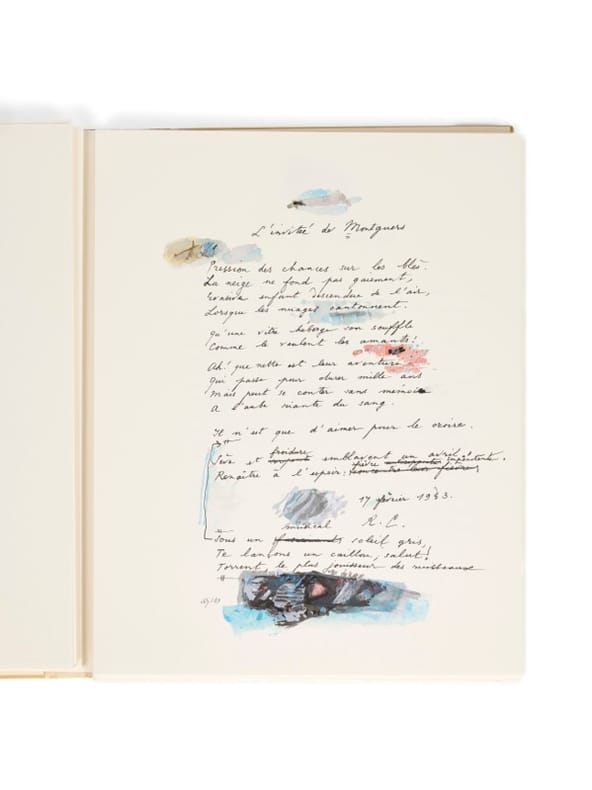 L'invité de Montguers
Pression des chances sur les blés.
La neige ne fond pas gaiement,
enfant descendue de l'air,
Lorsque les nuages cantonnent.
Qu'une vitre héberge son souffle
Comme le veulent les amants!
Ah! que nette est leur aventure
Qui passe pour durer mille ans
Mais peut se conter sans mémoire
A l'aube du sang.
Il n'est que d'aimer pour le croire.
froidure
Sève et emblavent un avril!
Renaître à l'espoir: fièvre impénitente.
17 février 1983.
musical R. C.
Sous un soleil gris,
Te lançons un caillou, salut!
Torrent, le plus jouisseur des ruisseaux